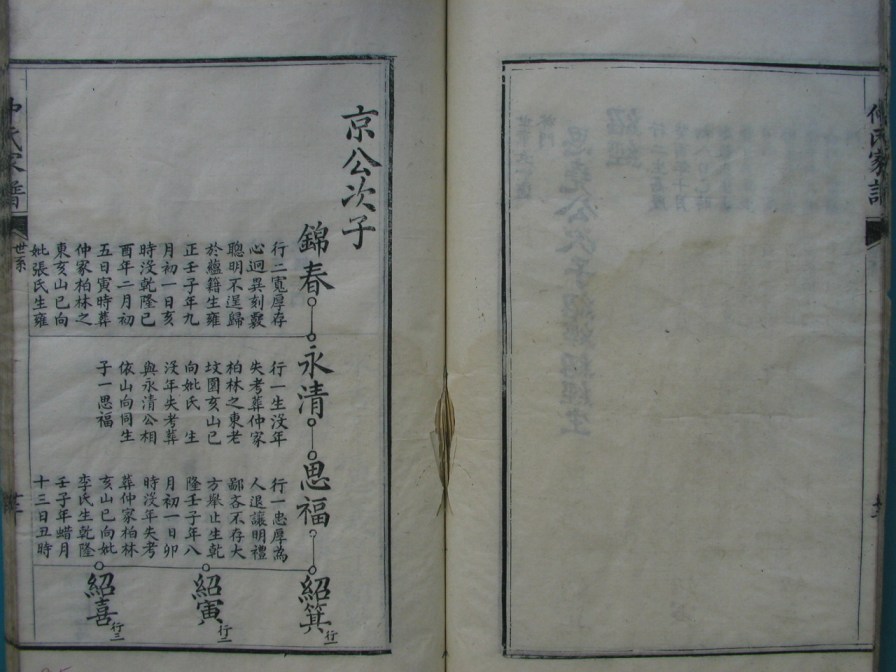 京公次子
錦春
行二寬厚存
心迥異刻覈
聰明不逞歸
於蘊籍生雍
正壬子年九
月初一日亥
時没乾隆已
酉年二月初
五日寅時葬
仲家柏林之
東亥山巳向
妣張氏生雍
永清
行一生没年
失考葬仲家
柏林之東老
坟圍亥山巳
向妣氏 生
没年失考葬
與永清公相
依山向同生
子一思福
思福
行一忠厚為
人退讓明禮
鄙吝不存大
方舉止生乾
隆壬子年八
月初一日卯
時没年失考
葬仲家柏林
亥山巳向妣
李氏生乾隆
壬子年蜡月
十三日丑時
紹箕 行一
紹寅
紹喜 行三
世系